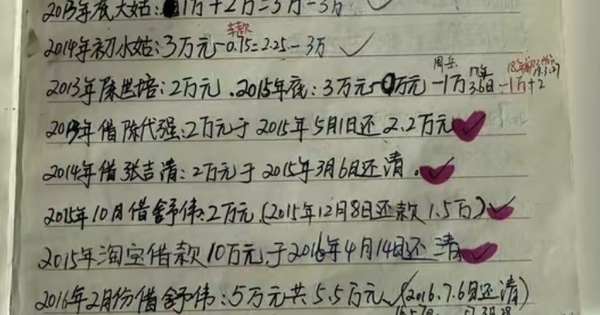 2013年底大姑:1万+2万=3万-3万
车款
2014年初小姑:3万元-0.75=2.25-3万 ✓
2013年 2万元.2015年底:3万元 万元-1万 -1万+2
2013年借陈代强:2万元于2015年5月1日还2.2万元 ✓
2014年借张吉清:2万元于2015年3月6日还清. ✓
2015年10月借舒伟:2万元(2015年12月8日还款1.5万) ✓
2015年淘宝借款10万元于2016年4月14日还清 ✓
2016年2月份借舒伟:5万元共5.5万元(2016.7.6日还清)